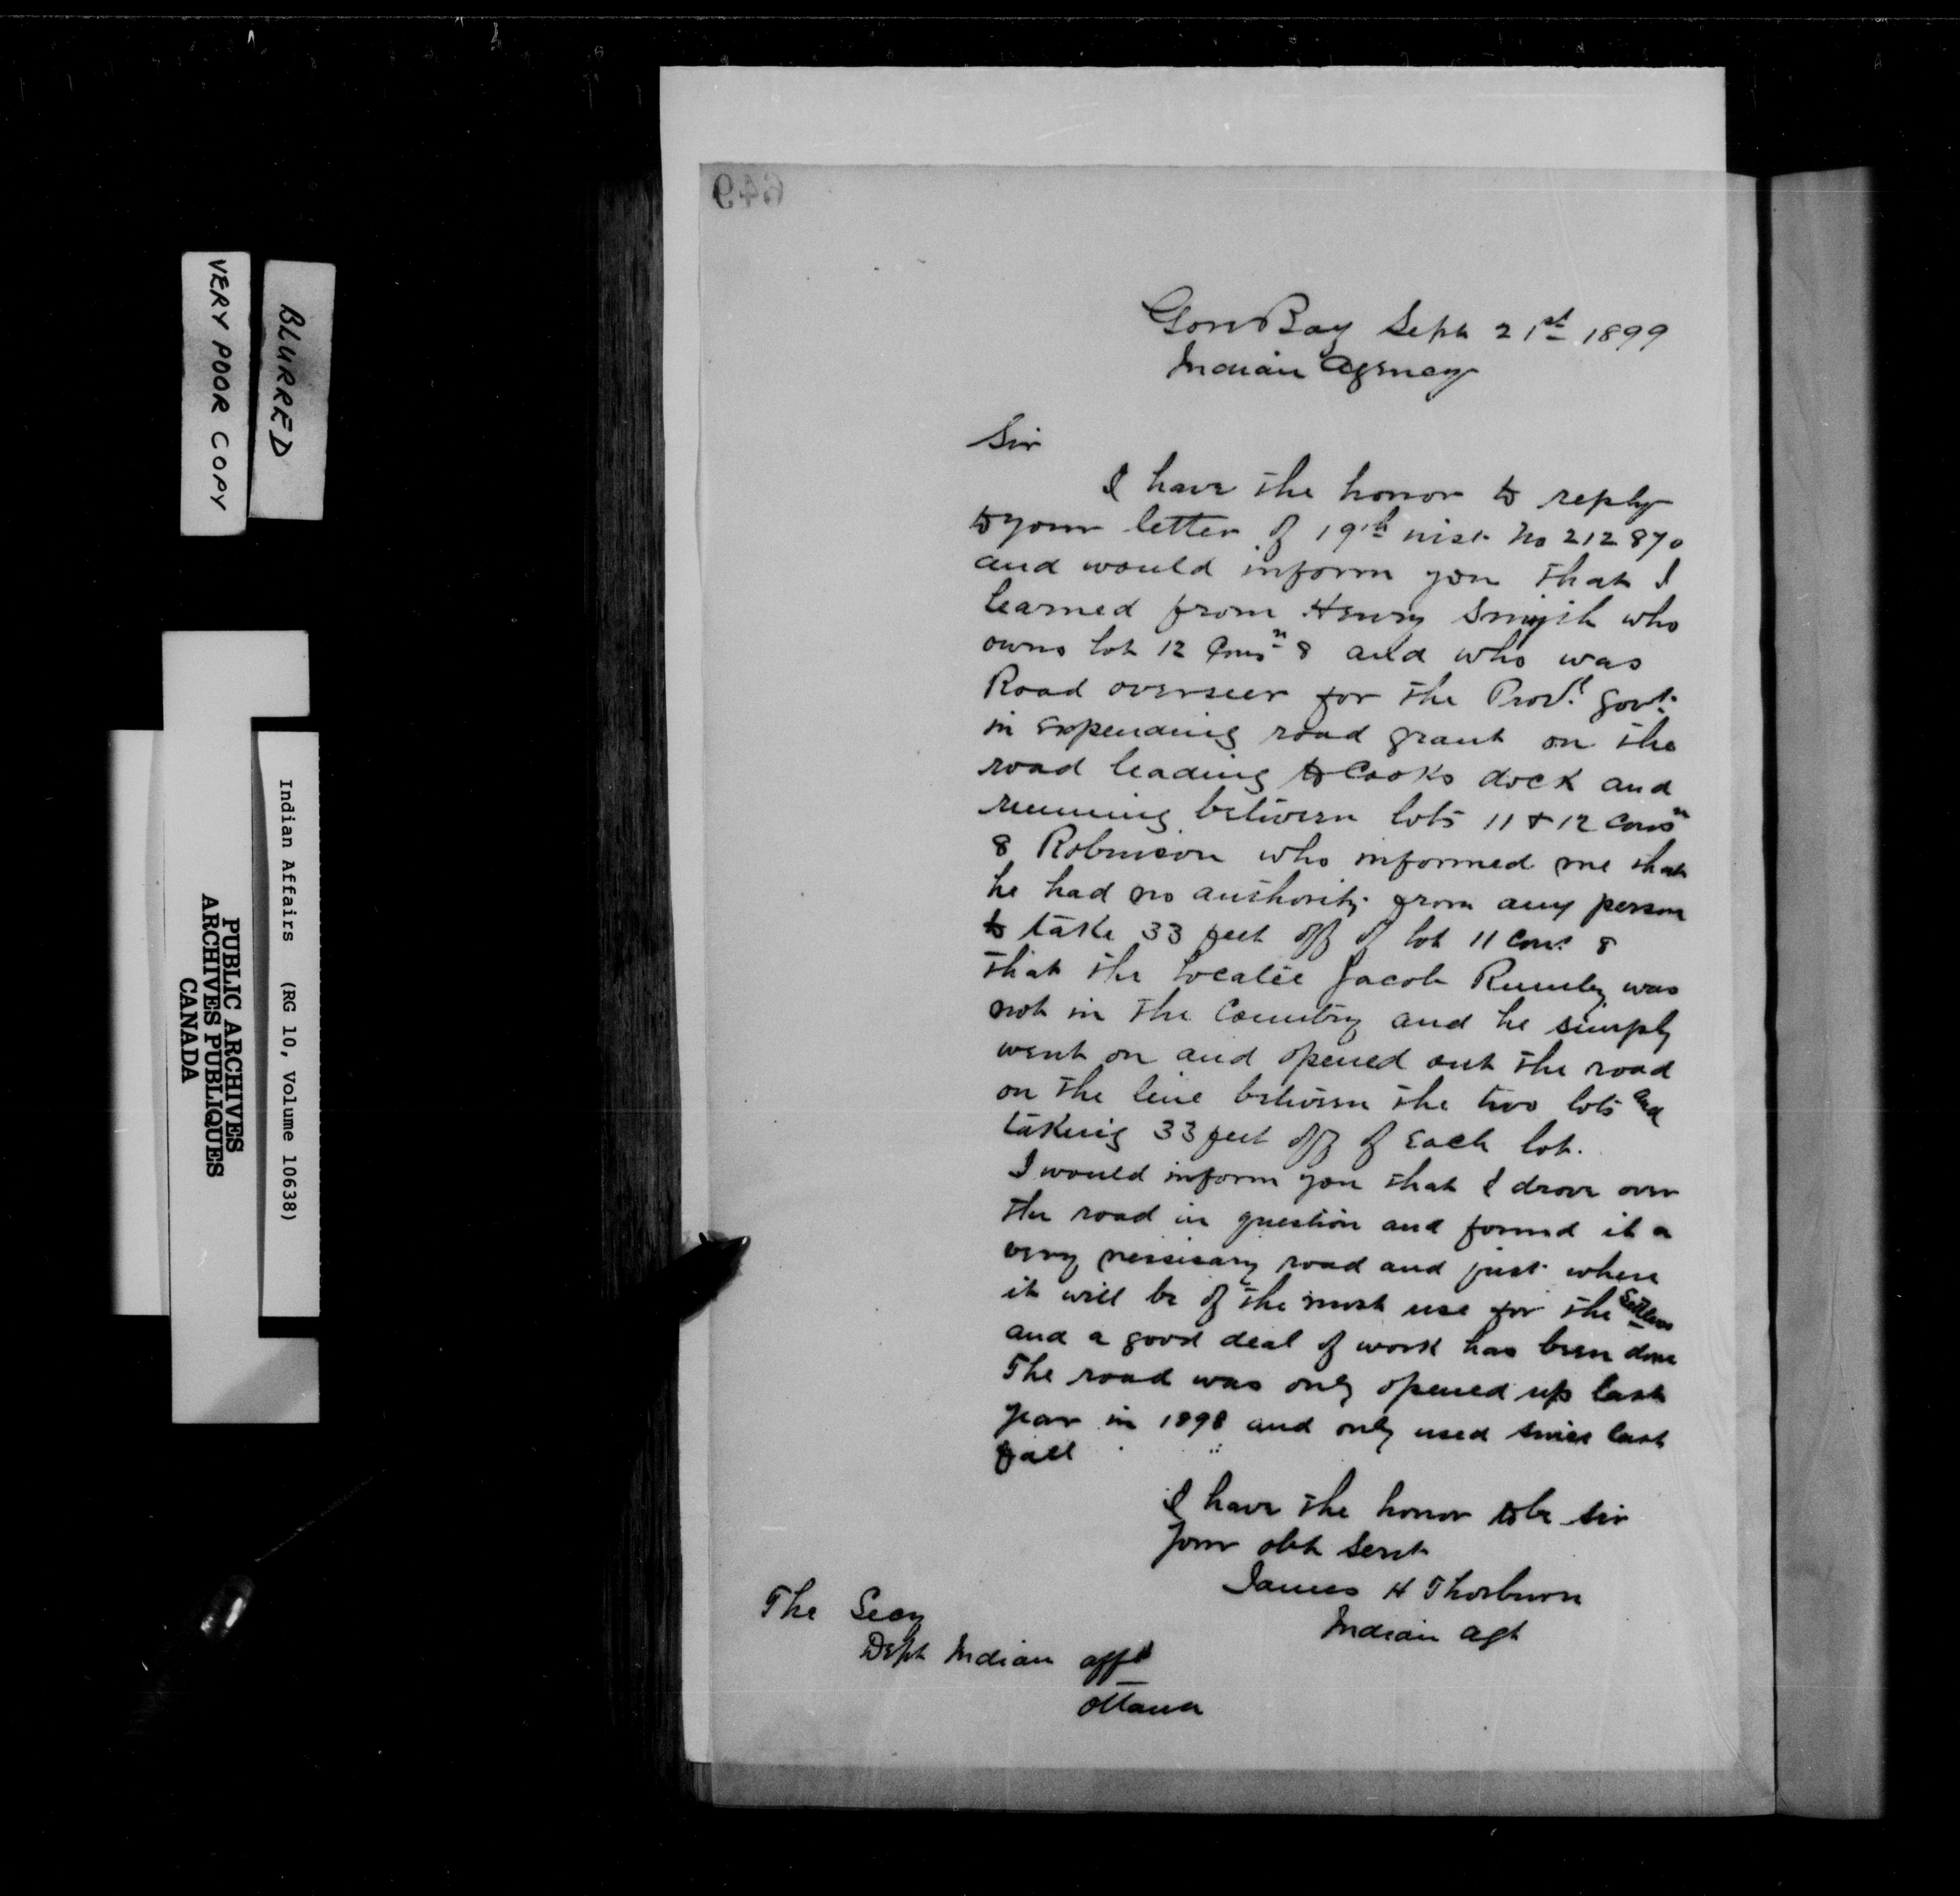 BLURRED
VERY POOR COPY
Indian Affairs (RG 10, Volume 10638)
PUBLIC ARCHIVES
ARCHIVES PUBLIQUES
CANADA
649
Gore Bay Sept 21st 1899
Indian Agency
Sir
I have the honor to reply
to your letter of 19th inst No 212870
and would inform you that I
learned from Henry Smyth who
owns lot 12 Consn 8 and who was
Road overseer for the Provl. Govt.
in expending road grant on the
road leading to Cooks dock and
running between lots 11 & 12 Consn
8 Robinson who informed me that
he had no authority from any person
to take 33 feet off of lot 11 Cons 8
that the Locatee Jacob Rumley was
not in the Country and he simply
went on and opened out the road
on the line between the two lots and
taking 33 feet off of each lot.
I would inform you that I drove over
the road in question and found it a
very nessisary road and just where
it will be of the most use for the Settlers
and a good deal of work has been done
The road was only opened up last
year in 1898 and only used since last
fall
I have the honor to be Sir
Your obt Servt
James H Thorburn
Indian Agt
The Secy
Dept Indian Affs
Ottawa